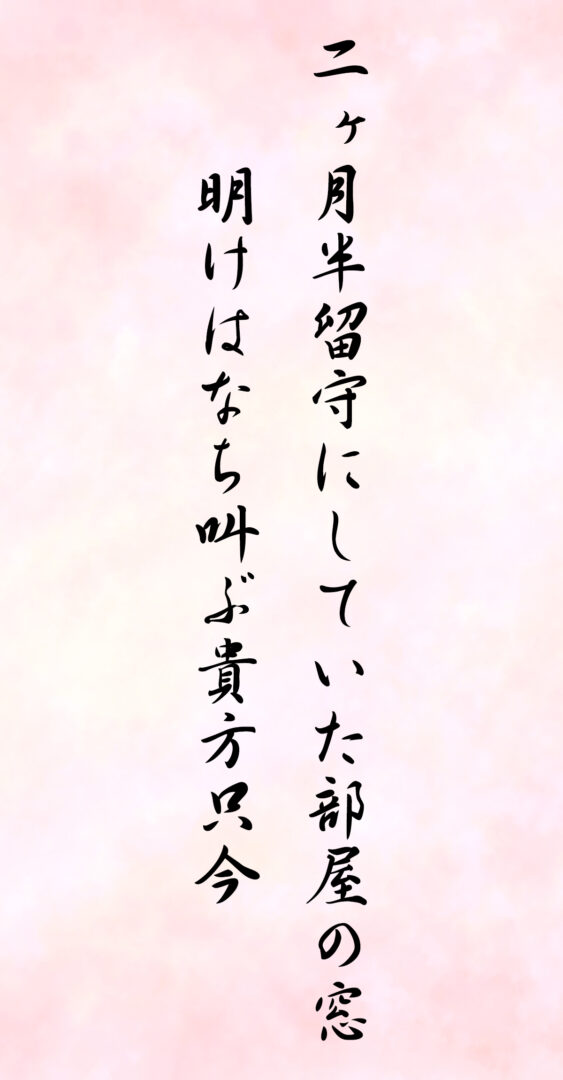 二ヶ月半留守にしていた部屋の窓
明けはなち叫ぶ貴方只今